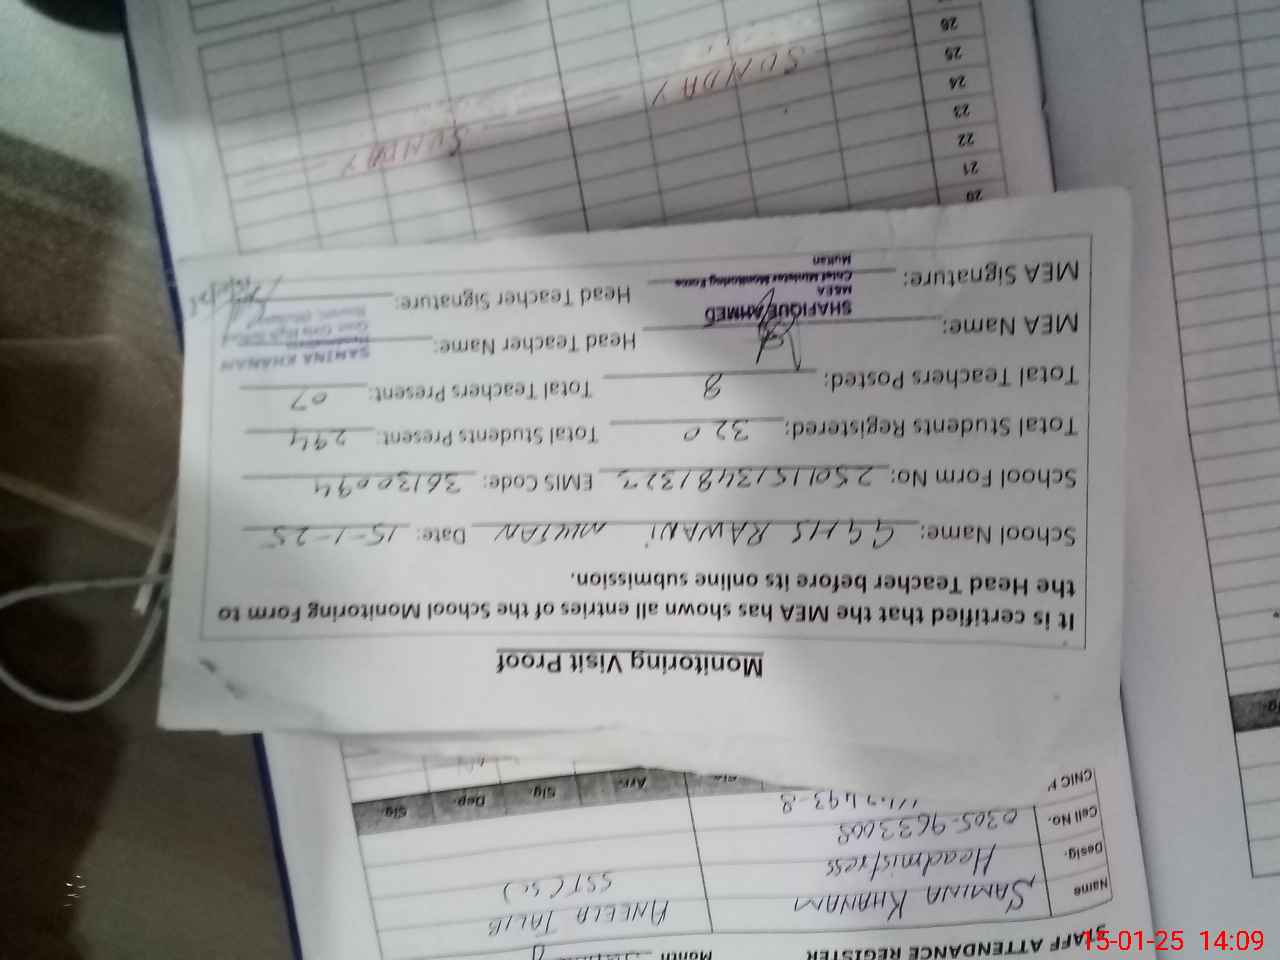 Monitoring Visit Proof
It is certified that the MEA has shown all entries of the School Monitoring Form to
the Head Teacher before its online submission.
School Name: GGHS RAWANI MULTAN Date: 15-1-25
School Form No: 250115134813273 EMIS Code: 36130094
Total Students Registered: 320 Total Students Present: 294
Total Teachers Posted: 8 Total Teachers Present: 07
MEA Name: Head Teacher Name: SAMINA KHANAM
SHAFIQUE AHMED
MEA
Chief Minister Monitoring Force
Multan
MEA Signature: Head Teacher Signature:
20
21
22
23
24
25
26
SUNDAY
SUNDAY
STAFF ATTENDANCE REGISTER Month
Name SAMINA KHANAM ANEELA TALIB
Desig. Headmistress SST (Sc)
Cell No. 0305-9633008
CNIC #
Arr. Sig. Dep. Sig.
15-01-25 14:09